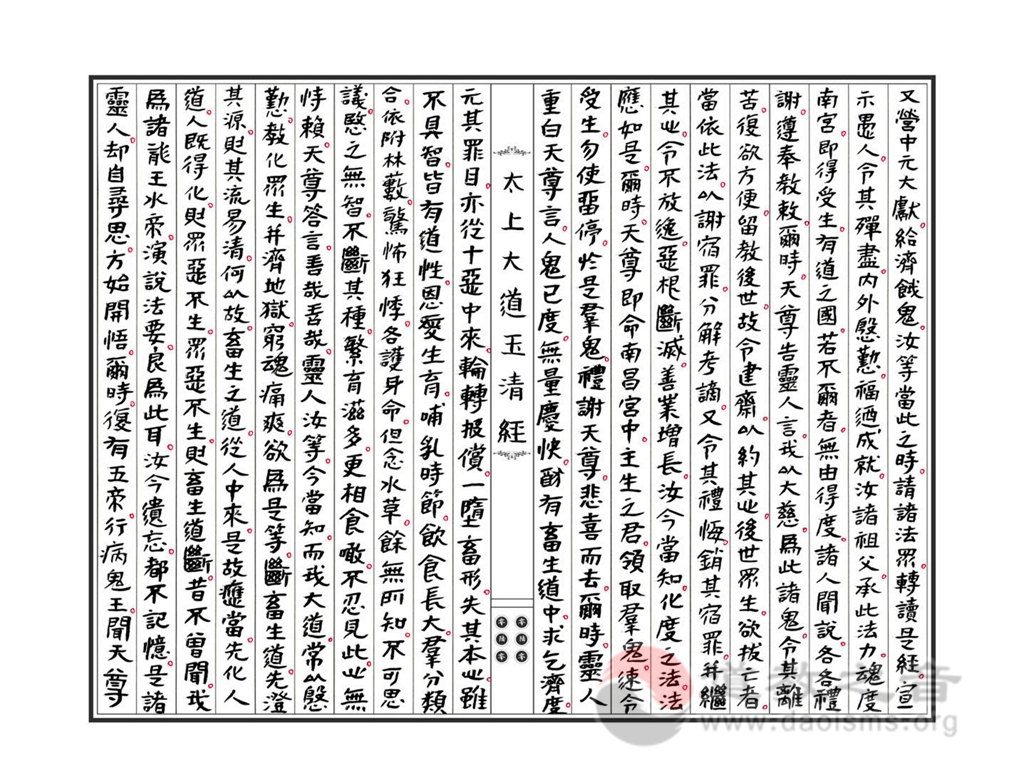 又營中元大獻給濟餓鬼汝等當此之時請諸法眾轉讀是經宣
示愚人令其殫盡內外慇懃福迺成就汝諸祖父承此法力魂度
南宮即得受生有道之國若不爾者無由得度諸人聞說各各禮
謝遵奉教敕爾時天尊告靈人言我以大慈為此諸鬼令其離
苦復欲方便留教後世故令建齋以約其心後世眾生欲拔亡者
當依此法以謝宿罪分解考謫又令其禮悔銷其宿罪并繼
其心令不放逸惡根斷滅善業增長汝今當知化度之法法
應如是爾時天尊即命南昌宮中主生之君領取羣鬼速令
受生勿使留停於是羣鬼禮謝天尊悲喜而去爾時靈人
重白天尊言人鬼已度無量慶快酬有畜生道中求乞濟度
太上大道玉清經
元其罪目亦從十惡中來輪轉报償一墮畜形失其本心雖
不具智皆有道性恩愛生育哺乳時節飲食長大羣分類
合依附林藪驚怖狂悸各護身命但念水草餘無所知不可思
議愍之無智不斷其種繁育滋多更相食噉不忍見此心無
恃賴天尊答言善哉善哉靈人汝等今當知而我大道常以慇
懃教化眾生并濟地獄窮魂痛爽欲為是等斷畜生道先澄
其源則其流易清何以故畜生之道從人中來是故應當先化人
道人既得化則眾惡不生眾惡不生則畜生道斷昔不曾聞我
為諸龍王水帝演說法要良為此耳汝今遺忘都不記憶是諸
靈人却自尋思方始開悟爾時復有五帝行病鬼王聞天尊
道教之音
www.daoisms.org